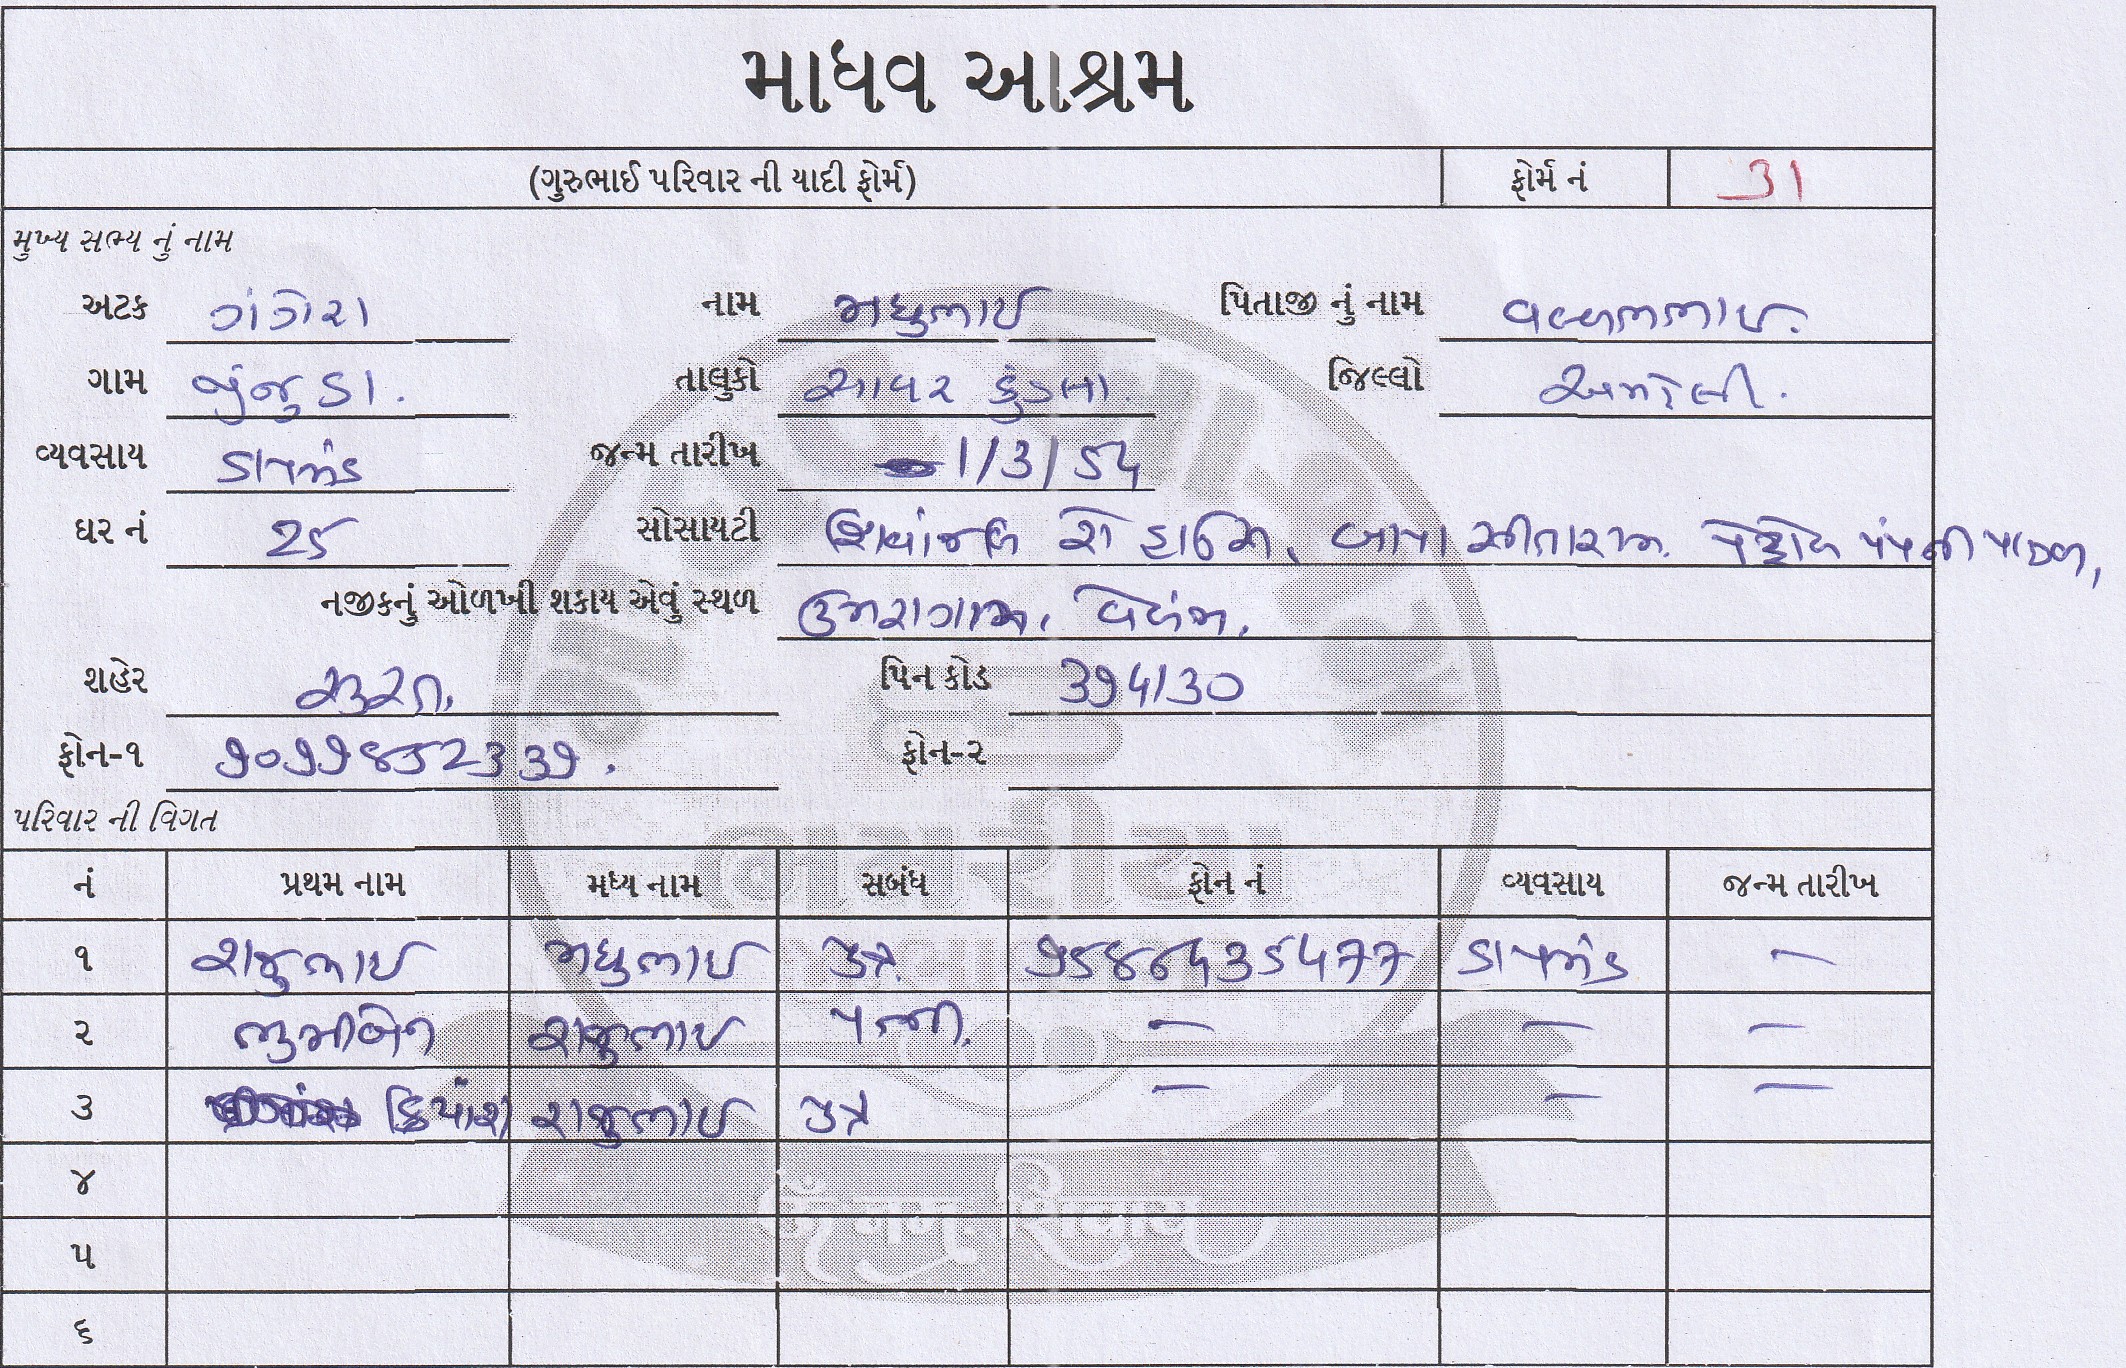 માધવ આશ્રમ
(ગુરુભાઈ પરિવાર ની યાદી ફોર્મ) ફોર્મ નં 31
મુખ્ય સભ્ય નું નામ
અટક ગંગેરા નામ મધુભાઈ પિતાજી નું નામ વલ્લભભાઈ.
ગામ જુંજુડા. તાલુકો સાવર કુંડલા. જિલ્લો અમરેલી.
વ્યવસાય ડાયમંડ જન્મ તારીખ 1/3/
ઘર નં 25 સોસાયટી શિવાંજલિ રો હાઉસ, બાપા સીતારામ. પેટ્રોલ પંપની પાછળ,
નજીકનું ઓળખી શકાય એવું સ્થળ ઉમરાગામ, વેલંજા.
શહેર સુરત. પિન કોડ 394130
ફોન-૧ ફોન-૨
પરિવાર ની વિગત
નં પ્રથમ નામ મધ્ય નામ સબંધ ફોન નં વ્યવસાય જન્મ તારીખ
૧ રાજુભાઈ મધુભાઈ પુત્ર ડાયમંડ –
૨ ભુમીબેન રાજુભાઈ પત્ની. – – –
૩ ક્રિયાંશ રાજુભાઈ પુત્ર – – –
૪
૫
૬